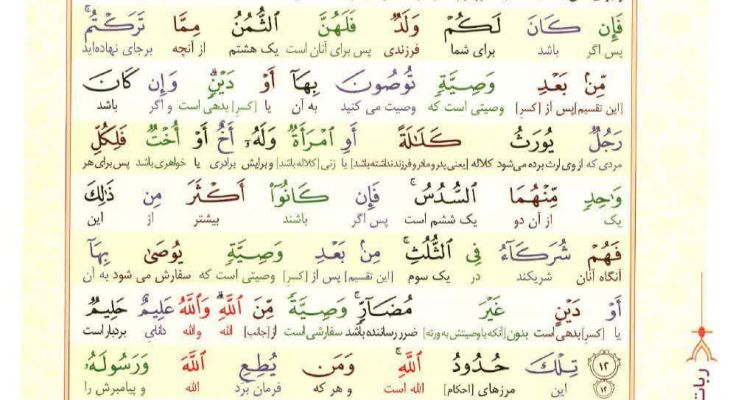 فَإِن كَانَ لَكُمْ وَلَدٌ فَلَهُنَّ ٱلثُّمُنُ مِمَّا تَرَكْتُمۚ
پس اگر باشد برای شما فرزندی پس برای آنان است یک هشتم از آنچه برجای نهاده‌اید
مِّنۢ بَعْدِ وَصِيَّةٍ تُوصُونَ بِهَآ أَوْ دَيْنٍۗ وَإِن كَانَ
[این تقسیم] پس از [کسرِ] وصیتی است که وصیت می کنید به آن یا [کسرِ] بدهی است و اگر باشد
رَجُلٌ يُورَثُ كَلَـٰلَةً أَوِ ٱمْرَأَةٌ وَلَهُۥٓ أَخٌ أَوْ أُخْتٌ فَلِكُلِّ
مردی که از وی ارث برده می‌شود کلاله [یعنی پدر و مادر و فرزند نداشته باشد] یا زنی [کلاله باشد] و برایش برادری یا خواهری باشد پس برای هر
وَٰحِدٍ مِّنْهُمَا ٱلسُّدُسُۚ فَإِن كَانُوٓا۟ أَكْثَرَ مِن ذَٰلِكَ
یک از آن دو یک ششم است پس اگر باشند بیشتر از این
فَهُمْ شُرَكَآءُ فِى ٱلثُّلُثِۚ مِنۢ بَعْدِ وَصِيَّةٍ يُوصَىٰ بِهَآ
آنگاه آنان شریکند در یک سوم [این تقسیم] پس از [کسرِ] وصیتی است که سفارش می شود به آن
أَوْ دَيْنٍ غَيْرَ مُضَآرٍّۚ وَصِيَّةً مِّنَ ٱللَّهِۗ وَٱللَّهُ عَلِيمٌ حَلِيمٌ
یا [کسرِ] بدهی است بدون [آنکه با وصیتش به ورثه] ضرر رساننده باشد سفارشی است از [جانب] الله و الله دانای بردبار است
١٢ تِلْكَ حُدُودُ ٱللَّهِۚ وَمَن يُطِعِ ٱللَّهَ وَرَسُولَهُۥ
١٢ این مرزهای [احکام] الله است و هر که فرمان بَرَد الله و پیامبرش را